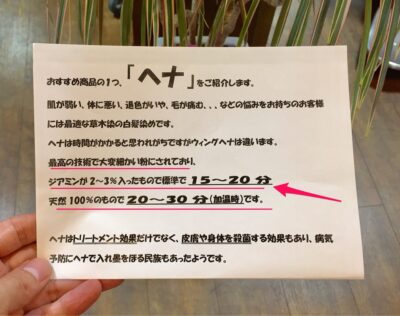 おすすめ商品の1つ、「ヘナ」をご紹介します。
肌が弱い、体に悪い、退色がいや、毛が痛む、、、などの悩みをお持ちのお客様
には最適な草木染の白髪染めです。
ヘナは時間がかかると思われがちですがウィングヘナは違います。
最高の技術で大変細かい粉にされており、
ジアミンが2~3%入ったもので標準で15~20分
天然100%のもので20~30分(加温時)です。
ヘナはトリートメント効果だけでなく、皮膚や身体を殺菌する効果もあり、病気
予防にヘナで入れ墨をほる民族もあったようです。